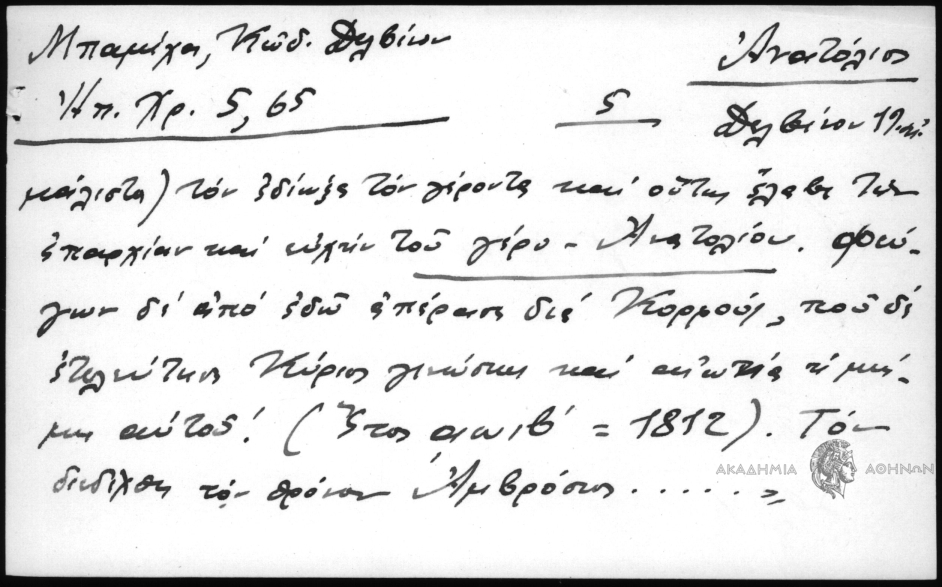 Μπαμίχα, Κῶδ. Δελβίνου
Ἀνατόλιος
Ἠπ. Χρ. 5, 65
5
Δελβίνου 19.
μάλιστα) τόν ἐδίωξε τόν γέροντα καί οὕτως ἔλαβε τήν
ἐπαρχίαν καί αὐλήν τοῦ γέρο - Ἀνατολίου. Φεύ-
γων δέ ἀπό ἐδῶ ἐπέρασε διά Κορφούς, ποῦ δέ
ἐτελεύτησε Κύριος γινώσκει καί αἰωνία ἡ μνή-
μη αὐτοῦ! (Ἔτος αωιβ' = 1812). Τόν
διεδέχθη τόν θρόνον Ἀμβρόσιος ...... »
ΑΚΑΔΗΜΙΑ ΑΘΗΝΩΝ